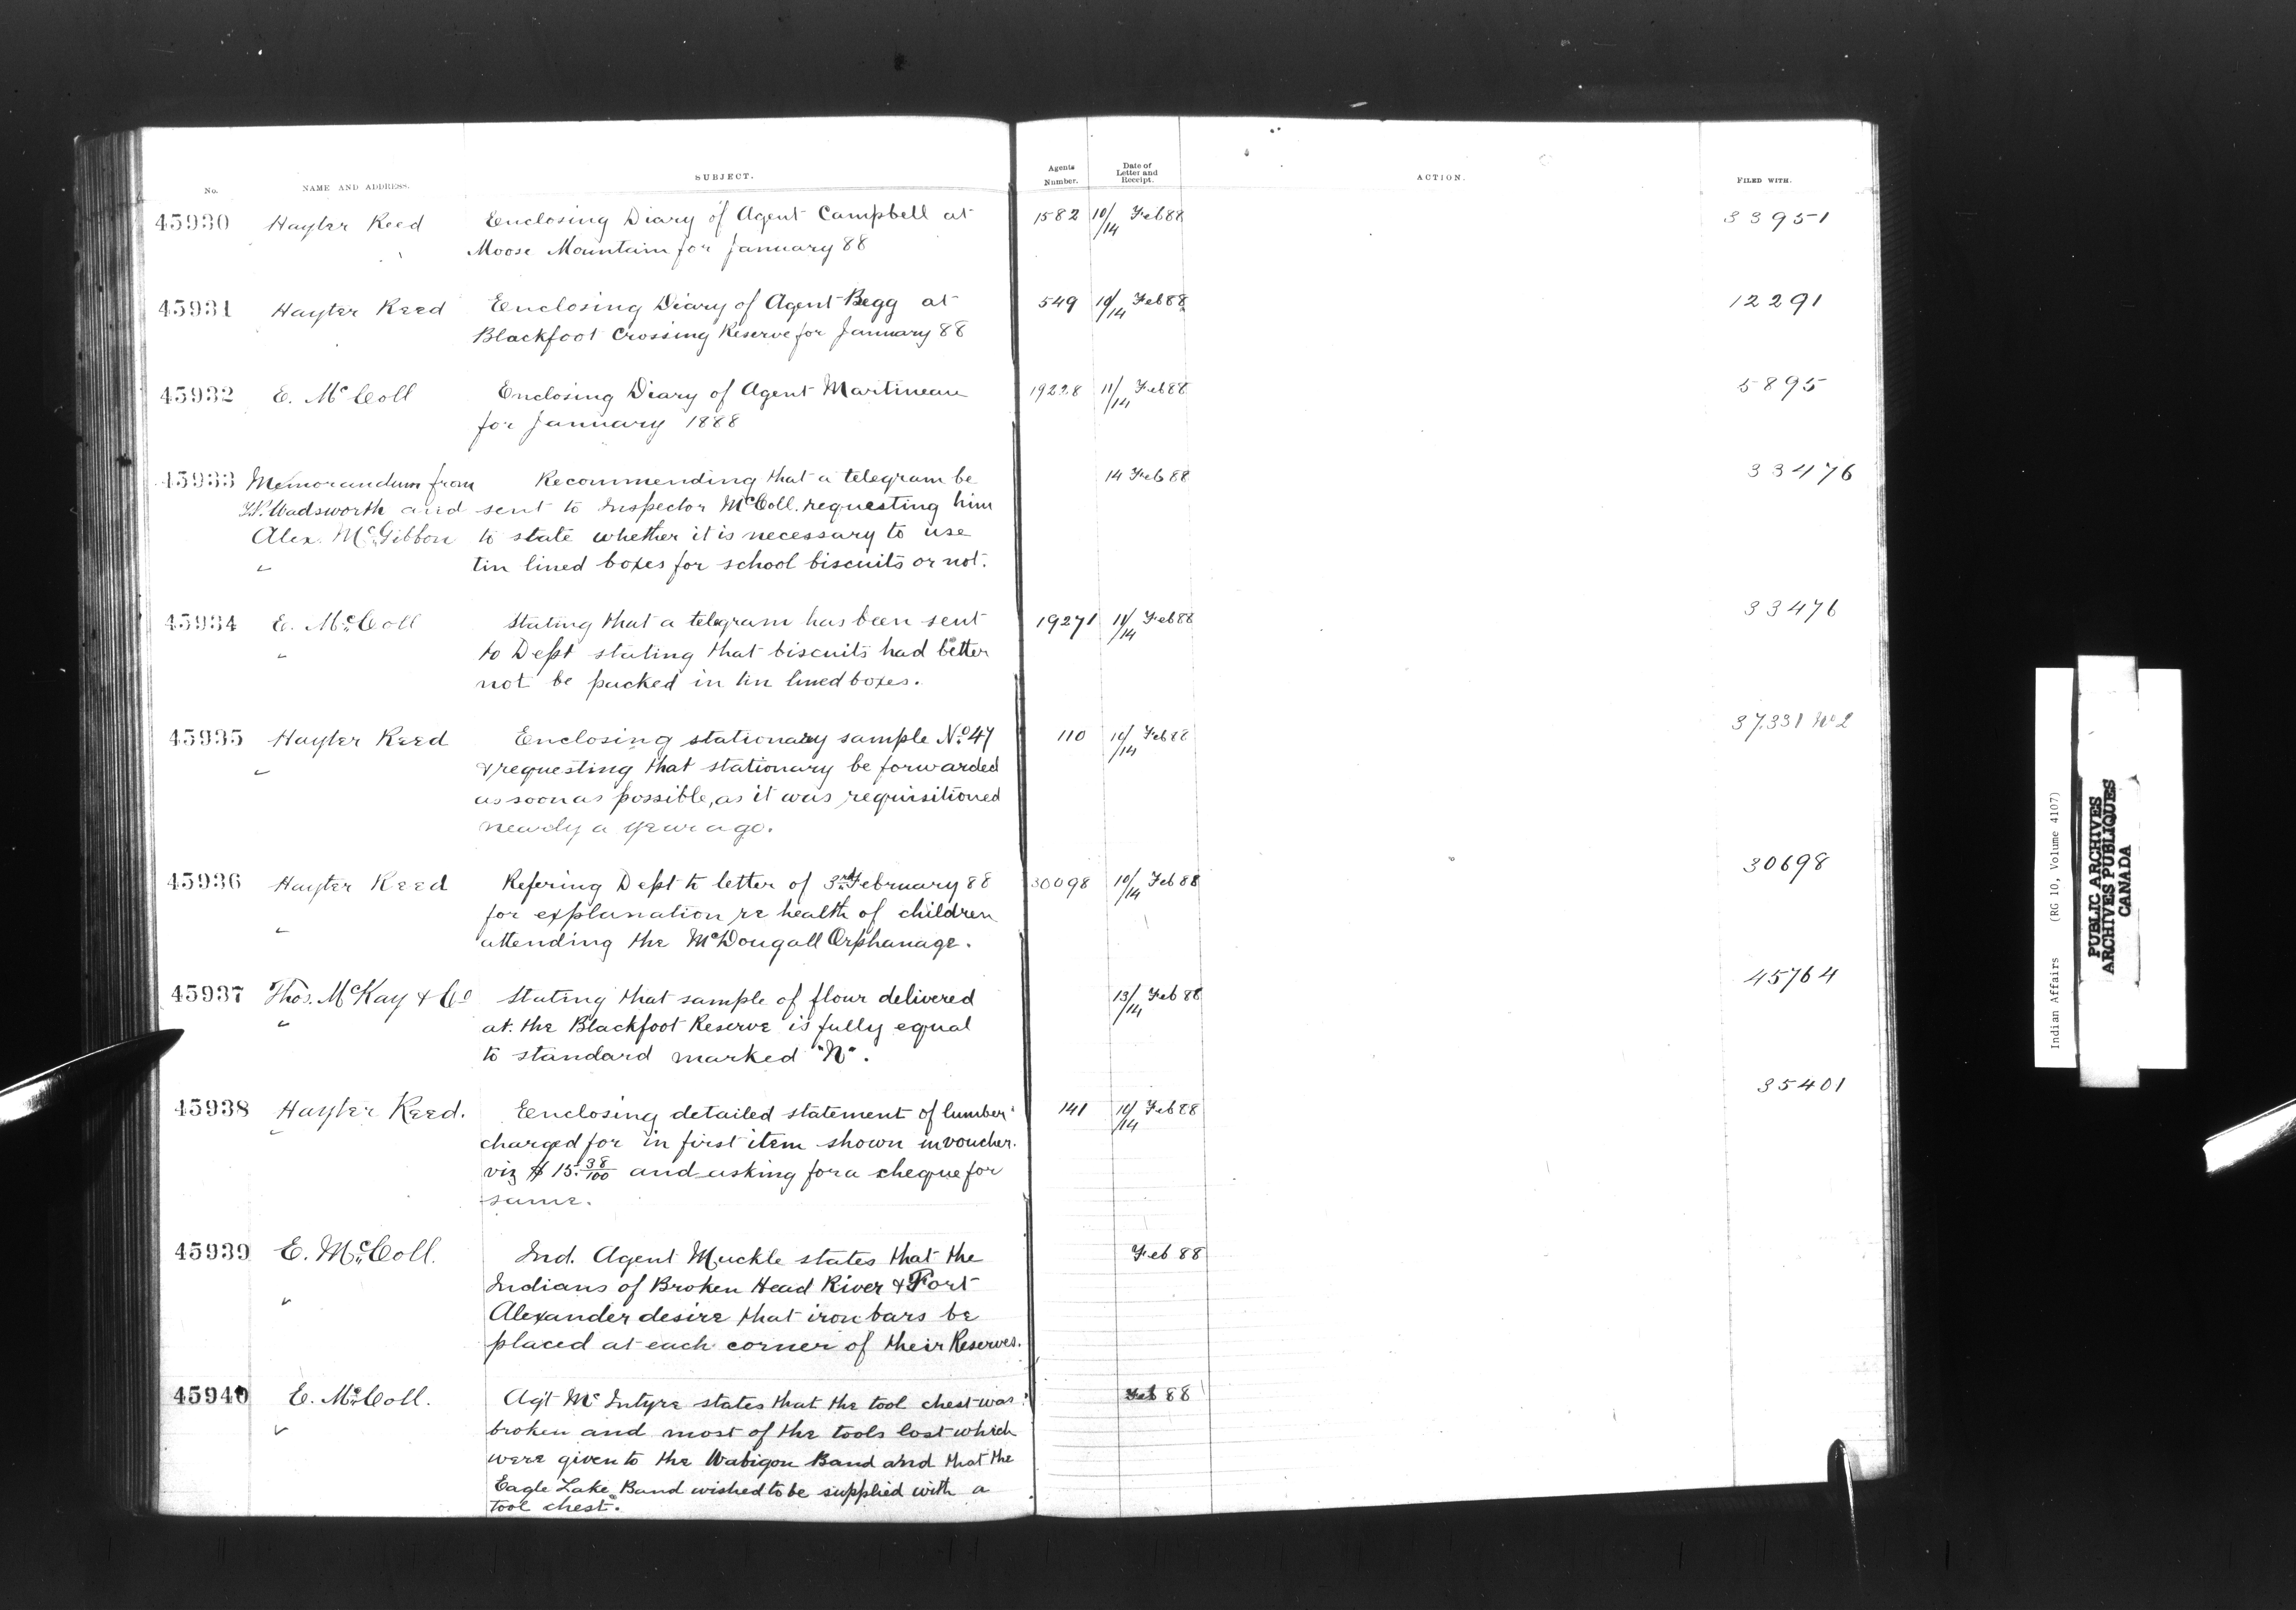 No. NAME AND ADDRESS. SUBJECT. Agents Number. Date of Letter and Receipt. ACTION. FILED WITH.
45930 Hayter Reed Enclosing Diary of Agent Campbell at 1582 10/14 Feb 88 33951
Moose Mountain for January 88
45931 Hayter Reed Enclosing Diary of Agent Begg at 549 10/14 Feb 88 12291
Blackfoot Crossing Reserve for January 88
45932 E. McColl Enclosing Diary of Agent Martineau 19228 11/14 Feb 88 5895
for January 1888
45933 Memorandum from Recommending that a telegram be 14 Feb 88 33476
T.P. Wadsworth and sent to Inspector McColl. requesting him
Alex. McGibbon to state whether it is necessary to use
" tin lined boxes for school biscuits or not.
45934 E. McColl Stating that a telegram has been sent 19271 11/14 Feb 88 33476
" to Dept stating that biscuits had better
not be packed in tin lined boxes.
45935 Hayter Reed Enclosing stationary sample No. 47 110 10/14 Feb 88 37.331 No 2
" & requesting that stationary be forwarded
as soon as possible, as it was requisitioned
nearly a year ago.
45936 Hayter Reed Refering Dept to letter of 3rd February 88 30098 10/14 Feb 88 30698
for explanation re health of children
" attending the McDougall Orphanage.
45937 Thos. McKay & Co Stating that sample of flour delivered 13/14 Feb 88 45764
" at the Blackfoot Reserve is fully equal
to standard marked "N".
45938 Hayter Reed. Enclosing detailed statement of lumber 141 10/14 Feb 88 35401
" charged for in first item shown in voucher.
viz $15.38/100 and asking for a cheque for
same.
45939 E. McColl. Ind. Agent Muckle states that the Feb 88
Indians of Broken Head River & Fort
" Alexander desire that iron bars be
placed at each corner of their Reserves.
45940 E. McColl. Agt McIntyre states that the tool chest was Feb 88
" broken and most of the tools lost which
were given to the Wabigon Band and that the
Eagle Lake Band wished to be supplied with a
tool chest.
Indian Affairs (RG 10, Volume 4107)
PUBLIC ARCHIVES
ARCHIVES PUBLIQUES
CANADA